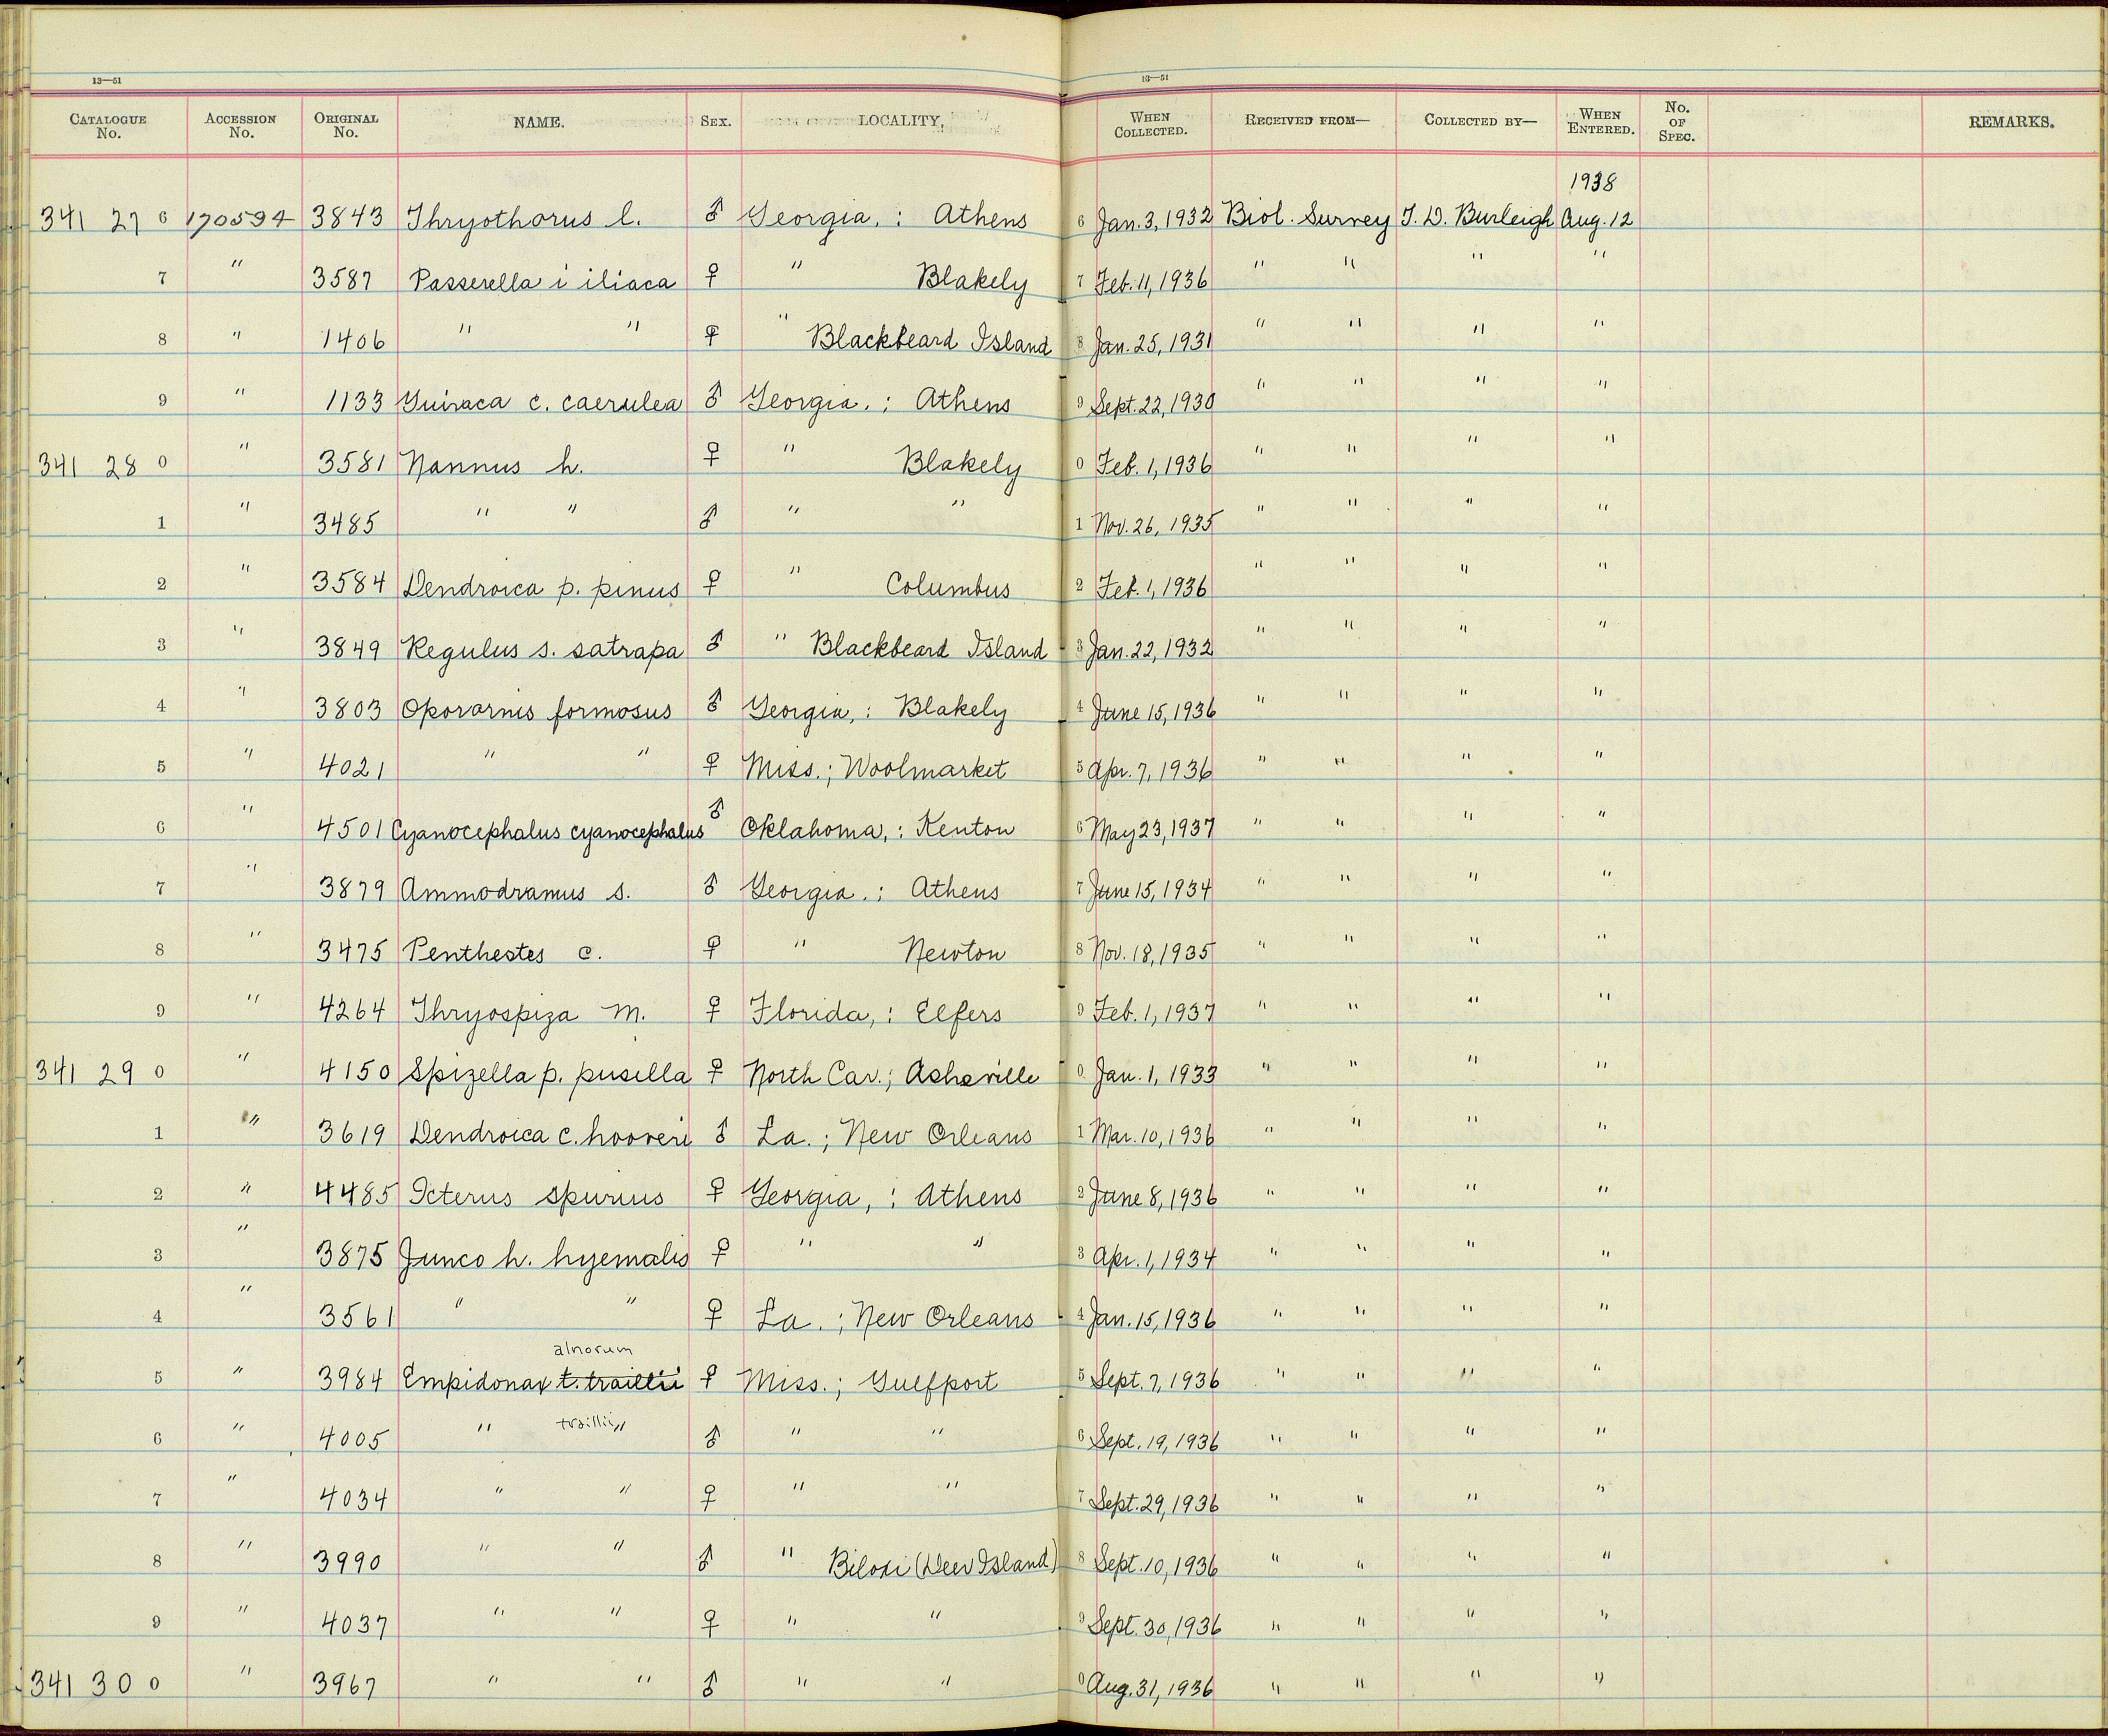 13—51
13—51
CATALOGUE No. ACCESSION No. ORIGINAL No. NAME. SEX. LOCALITY. WHEN COLLECTED. RECEIVED FROM— COLLECTED BY— WHEN ENTERED. No. OF SPEC. REMARKS.
1938
341 27 6 170594 3843 Thryothorus l. ♂ Georgia, : Athens 6 Jan. 3, 1932 Biol. Survey T. D. Burleigh Aug. 12
7 " 3587 Passerella i iliaca ♀ " Blakely 7 Feb. 11, 1936 " " " "
8 " 1406 " " ♀ " Blackbeard Island 8 Jan. 25, 1931 " " " "
9 " 1133 Guiraca c. caerulea ♂ Georgia, : Athens 9 Sept. 22, 1930 " " " "
341 28 0 " 3581 Nannus h. ♀ " Blakely 0 Feb. 1, 1936 " " " "
1 " 3485 " " ♂ " " 1 Nov. 26, 1935 " " " "
2 " 3584 Dendroica p. pinus ♀ " Columbus 2 Feb. 1, 1936 " " " "
3 " 3849 Regulus s. satrapa ♂ " Blackbeard Island 3 Jan. 22, 1932 " " " "
4 " 3803 Oporornis formosus ♂ Georgia, : Blakely 4 June 15, 1936 " " " "
5 " 4021 " " ♀ Miss. ; Woolmarket 5 Apr. 7, 1936 " " " "
6 " 4501 Cyanocephalus cyanocephalus ♂ Oklahoma, : Kenton 6 May 23, 1937 " " " "
7 " 3879 Ammodramus s. ♂ Georgia. : Athens 7 June 15, 1934 " " " "
8 " 3475 Penthestes c. ♀ " Newton 8 Nov. 18, 1935 " " " "
9 " 4264 Thryospiza m. ♀ Florida, : Elfers 9 Feb. 1, 1937 " " " "
341 29 0 " 4150 Spizella p. pusilla ♀ North Car. ; Asheville 0 Jan. 1, 1933 " " " "
1 " 3619 Dendroica c. hooveri ♂ La. ; New Orleans 1 Mar. 10, 1936 " " " "
2 " 4485 Icterus spurius ♀ Georgia, : Athens 2 June 8, 1936 " " " "
3 " 3875 Junco h. hyemalis ♀ " " 3 Apr. 1, 1934 " " " "
4 " 3561 " " ♀ La. ; New Orleans 4 Jan. 15, 1936 " " " "
alnorum
5 " 3984 Empidonax t. traillii ♀ Miss. ; Gulfport 5 Sept. 7, 1936 " " " "
6 " 4005 " traillii " ♂ " " 6 Sept. 19, 1936 " " " "
7 " 4034 " " ♀ " " 7 Sept. 29, 1936 " " " "
8 " 3990 " " ♂ " Biloxi (Deer Island) 8 Sept. 10, 1936 " " " "
9 " 4037 " " ♀ " " 9 Sept. 30, 1936 " " " "
341 30 0 " 3967 " " ♂ " " 0 Aug. 31, 1936 " " " "